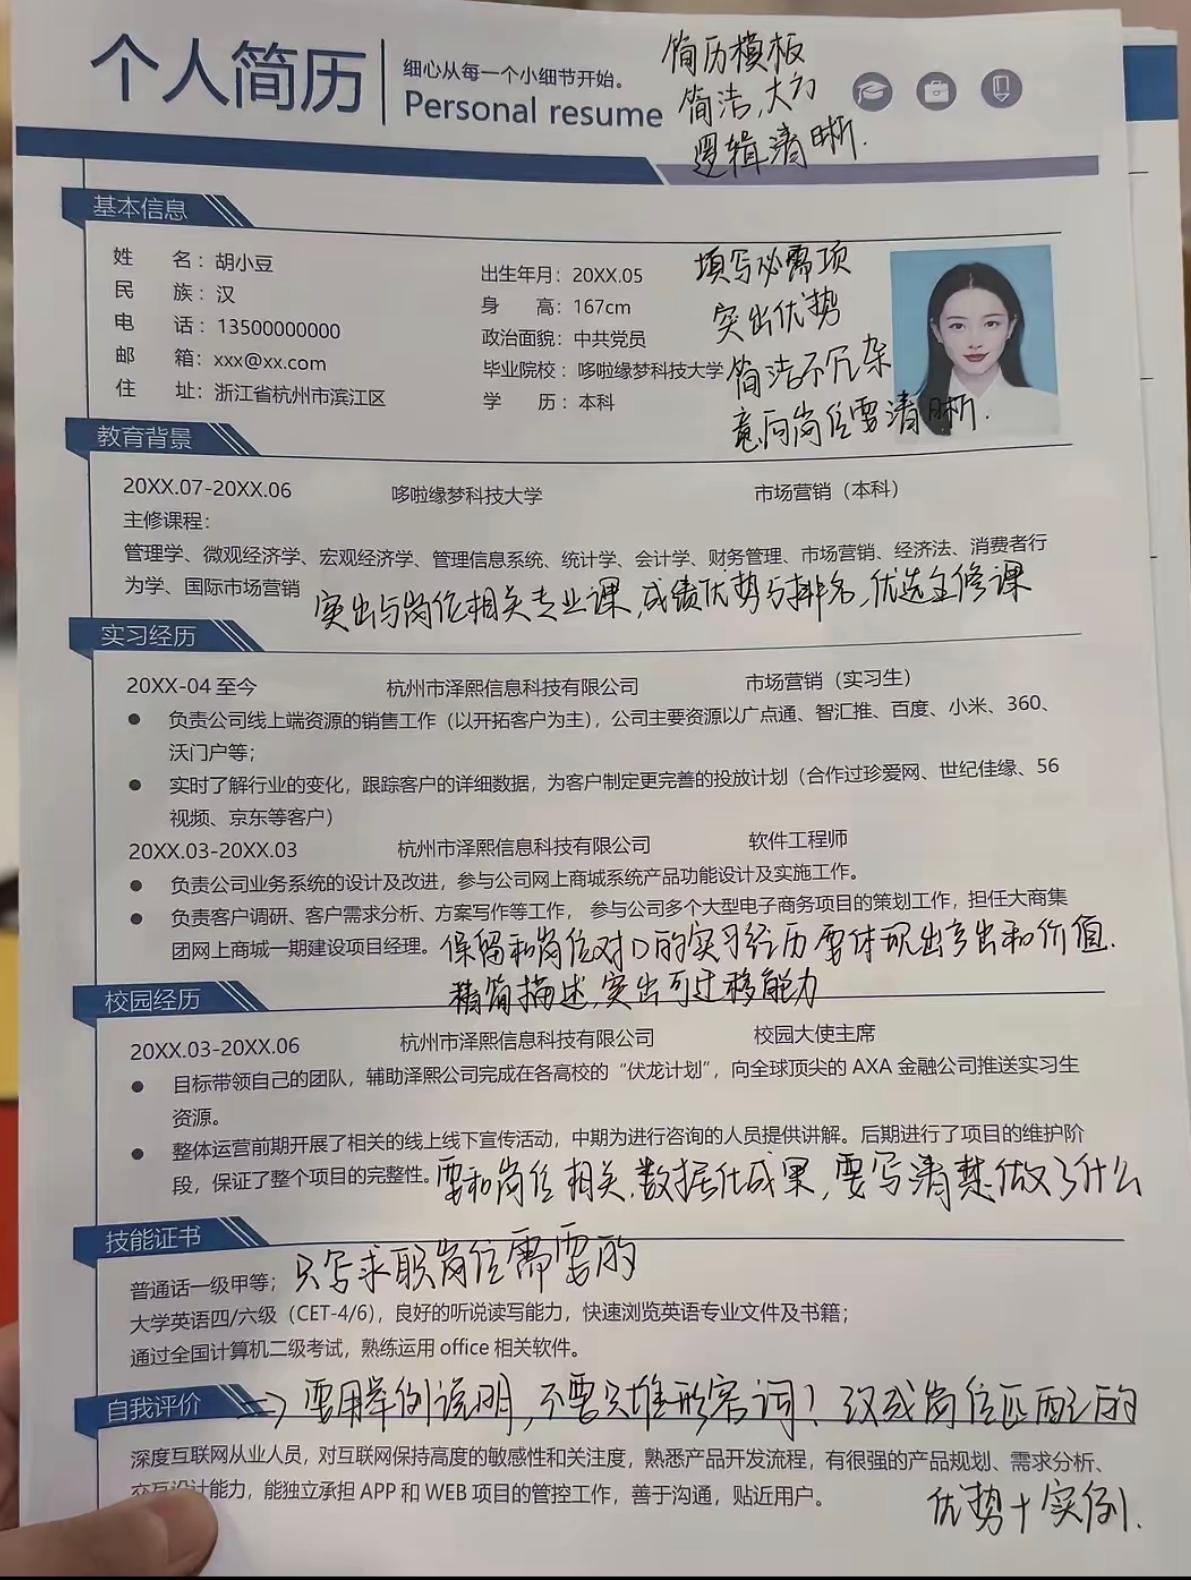 个人简历
细心从每一个小细节开始。
Personal resume
简历模板
简洁,大方
逻辑清晰.
基本信息
姓 名：胡小豆
民 族：汉
电 话：13500000000
邮 箱：xxx@xx.com
住 址：浙江省杭州市滨江区
出生年月：20XX.05
身 高：167cm
政治面貌：中共党员
毕业院校：哆啦缘梦科技大学
学 历：本科
填写必需项
突出优势
简洁不冗杂
意向岗位要清晰.
教育背景
20XX.07-20XX.06 哆啦缘梦科技大学 市场营销（本科）
主修课程：
管理学、微观经济学、宏观经济学、管理信息系统、统计学、会计学、财务管理、市场营销、经济法、消费者行
为学、国际市场营销
突出与岗位相关专业课,成绩优势与排名,优选主修课
实习经历
20XX-04 至今 杭州市泽熙信息科技有限公司 市场营销（实习生）
● 负责公司线上端资源的销售工作（以开拓客户为主），公司主要资源以广点通、智汇推、百度、小米、360、
沃门户等；
● 实时了解行业的变化，跟踪客户的详细数据，为客户制定更完善的投放计划（合作过珍爱网、世纪佳缘、56
视频、京东等客户）
20XX.03-20XX.03 杭州市泽熙信息科技有限公司 软件工程师
● 负责公司业务系统的设计及改进，参与公司网上商城系统产品功能设计及实施工作。
● 负责客户调研、客户需求分析、方案写作等工作， 参与公司多个大型电子商务项目的策划工作，担任大商集
团网上商城一期建设项目经理。
保留和岗位对口的实习经历要体现出产出和价值.
精简描述,突出可迁移能力
校园经历
20XX.03-20XX.06 杭州市泽熙信息科技有限公司 校园大使主席
● 目标带领自己的团队，辅助泽熙公司完成在各高校的“伏龙计划”，向全球顶尖的 AXA 金融公司推送实习生
资源。
● 整体运营前期开展了相关的线上线下宣传活动，中期为进行咨询的人员提供讲解。后期进行了项目的维护阶
段，保证了整个项目的完整性。
要和岗位相关,数据化成果,要写清楚做了什么
技能证书
只写求职岗位需要的
普通话一级甲等；
大学英语四/六级（CET-4/6），良好的听说读写能力，快速浏览英语专业文件及书籍；
通过全国计算机二级考试，熟练运用 office 相关软件。
自我评价
=> 要用举例说明,不要只堆形容词! 写成岗位匹配的
深度互联网从业人员，对互联网保持高度的敏感性和关注度，熟悉产品开发流程，有很强的产品规划、需求分析、
交互设计能力，能独立承担 APP 和 WEB 项目的管控工作，善于沟通，贴近用户。
优势+实例.